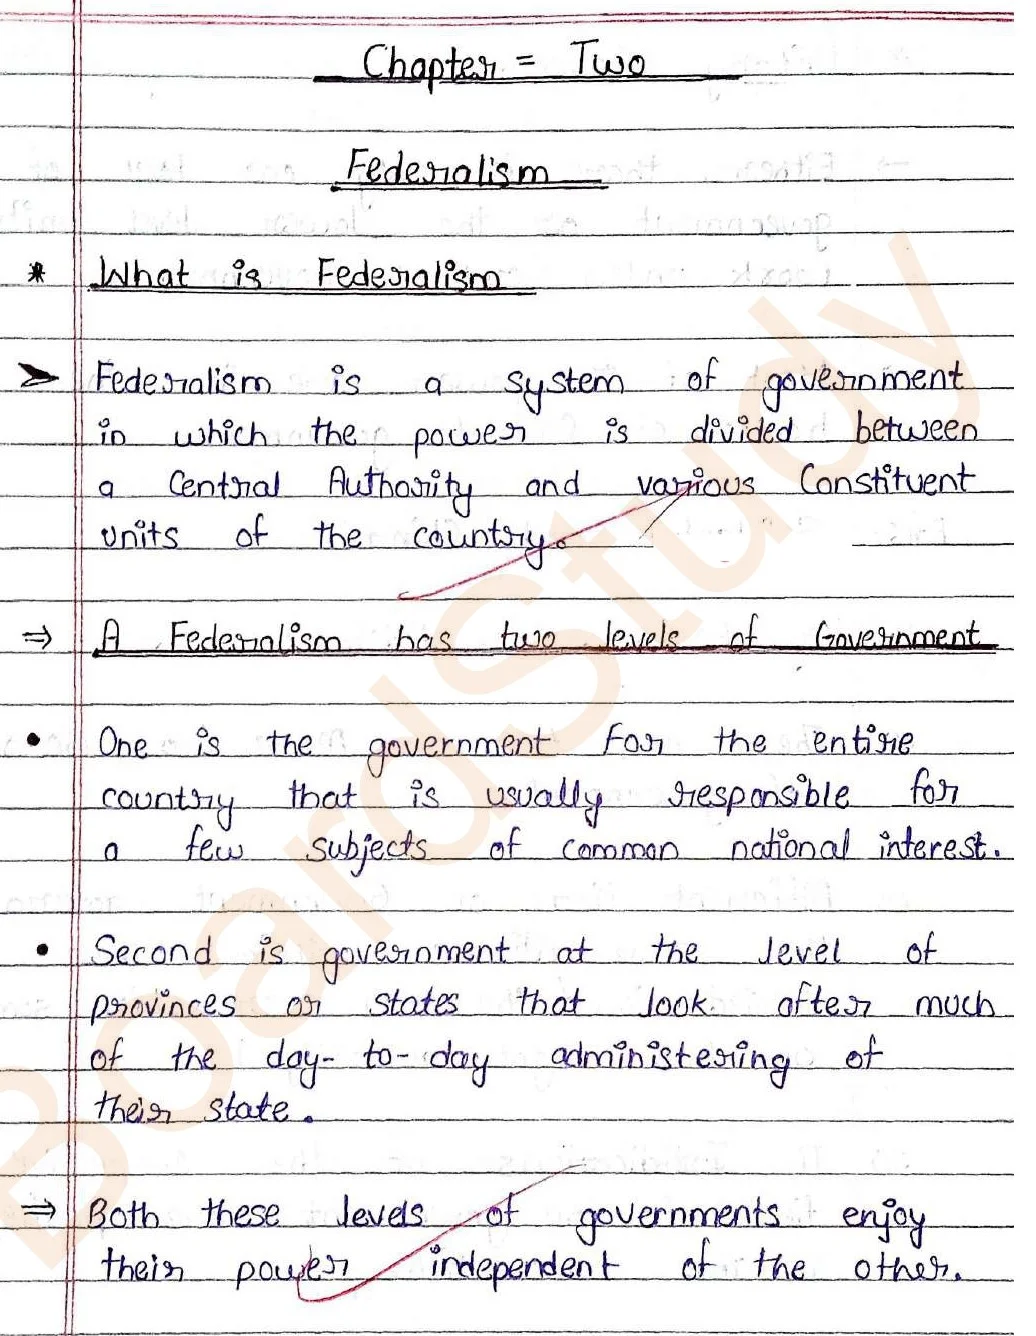 Chapter = Two
Federalism
* What is Federalism
➤ Federalism is a system of government
in which the power is divided between
a Central Authority and various Constituent
units of the country.
⇒ A Federalism has two levels of Government
• One is the government for the entire
country that is usually responsible for
a few subjects of common national interest.
• Second is government at the level of
provinces or states that look after much
of the day-to-day administering of
their state.
⇒ Both these levels of governments enjoy
their power independent of the other.
BoardStudy